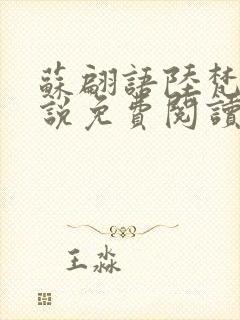 蘇翩語陸梵
說免費閱讀
王淼